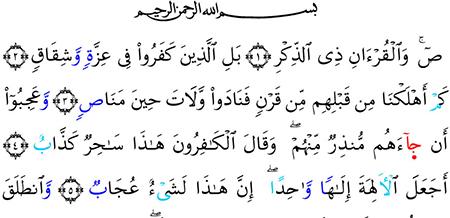 بسم الله الرحمن الرحيم
صٓ ۚ وَٱلْقُرْءَانِ ذِى ٱلذِّكْرِ ﴿١﴾ بَلِ ٱلَّذِينَ كَفَرُوا۟ فِى عِزَّةٍ وَشِقَاقٍ ﴿٢﴾
كَمْ أَهْلَكْنَا مِن قَبْلِهِم مِّن قَرْنٍ فَنَادَوا۟ وَّلَاتَ حِينَ مَنَاصٍ ﴿٣﴾ وَعَجِبُوٓا۟
أَن جَآءَهُم مُّنذِرٌ مِّنْهُمْ ۖ وَقَالَ ٱلْكَٰفِرُونَ هَٰذَا سَٰحِرٌ كَذَّابٌ ﴿٤﴾
أَجَعَلَ ٱلْأَلِهَةَ إِلَٰهًا وَٰحِدًا ۖ إِنَّ هَٰذَا لَشَىْءٌ عُجَابٌ ﴿٥﴾ وَٱنطَلَقَ